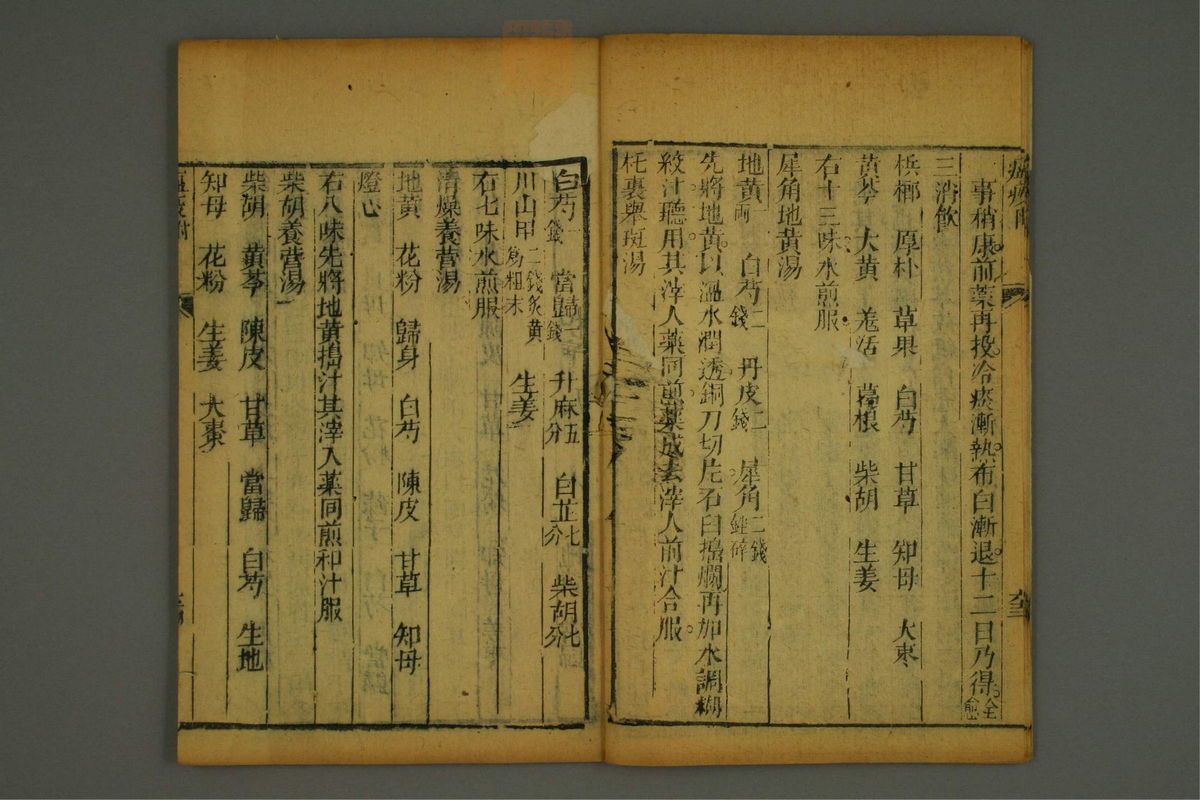 事稍康前藥再投冷痰漸熱布白漸退十二日乃得全愈
三消飲
梹榔 厚朴 草果 白芍 甘草 知母 大束
黄芩 大黄 羗活 葛根 柴胡 生姜
右十三味水煎服
犀角地黄湯
地黄一兩 白芍二錢 丹皮二錢 犀角二錢銼碎
先將地黄以溫水潤透銅刀切片石臼搗爛再加水調糊
絞汁聽用其滓人藥同前藥成去滓人前汁合服
托裏舉斑湯
白芍一錢 當歸一錢 升麻五分 白芷七分 柴胡七分
川山甲二錢炙黄爲粗末 生姜
右七味水煎服
清燥養營湯
地黄 花粉 歸身 白芍 陳皮 甘草 知母
燈心
右八味先將地黄搗汁其滓入藥同煎和汁服
柴胡養營湯
柴胡 黄芩 陳皮 甘草 當歸 白芍 生地
知母 花粉 生姜 大棗